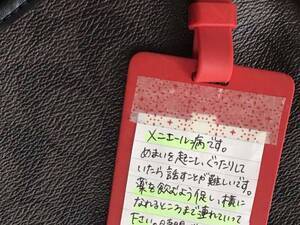 メニエール病です。
めまいを起こし、ぐったりして
いたら話すことが難しいです。
薬を飲むよう促し、横に
なれるところまで連れていって
下さい。